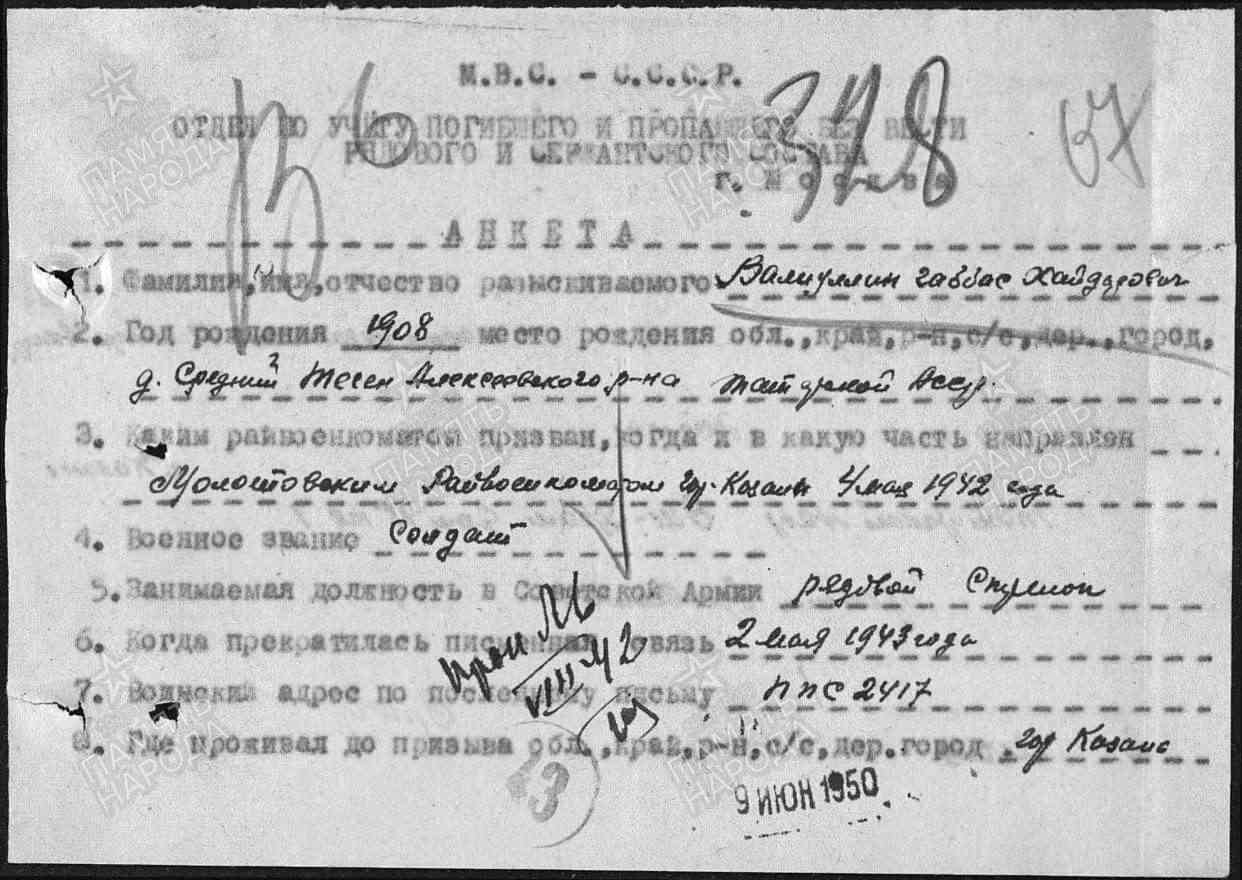 М.В.С. - С.С.С.Р.
328
67
ОТДЕЛ ПО УЧЁТУ ПОГИБШЕГО И ПРОПАВШЕГО БЕЗ ВЕСТИ
РЯДОВОГО И СЕРЖАНТСКОГО СОСТАВА
г. Москва
АНКЕТА
1. Фамилия, имя, отчество разыскиваемого Валиуллин Габбас Хайдарович
2. Год рождения 1908 место рождения обл., край, р-н, с/с, дер., город,
д. Средний Алексеевского р-на Татарской Асср.
3. Каким райвоенкоматом призван, когда и в какую часть направлен
Молотовским Райвоенкоматом гор. Казань 4 мая 1942 года
4. Военное звание Солдат
5. Занимаемая должность в Советской Армии рядовой
6. Когда прекратилась писменная связь 2 мая 1943 года
7. Воинский адрес по последнему письму ППС 2417
8. Где проживал до призыва обл., край, р-н, с/с, дер. город, гор Казань
VIII-42
43
9 ИЮН 1950
ПАМЯТЬ НАРОДА